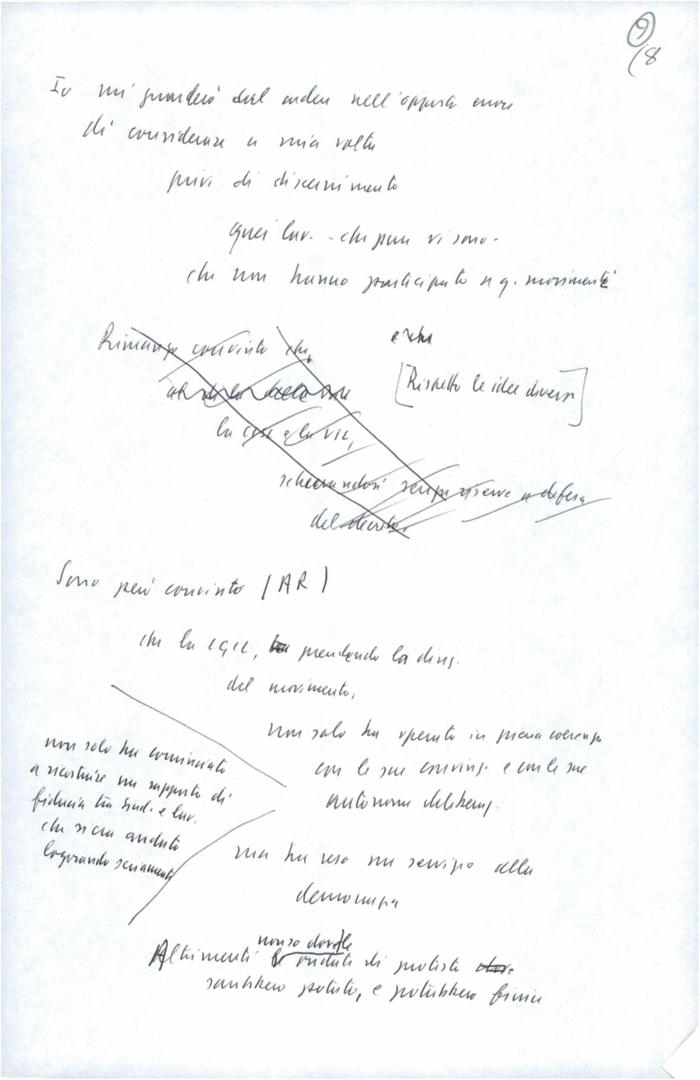 9
18
Io mi guarderò dal cadere nell'opposto errore
di considerare a mia volta
privi di discernimento
quei lav. - che pure vi sono -
che non hanno partecipato a q. movimenti
Rimango convinto che,
[Rispetto le idee diverse]
la CISL e la UIL,
schierandosi senza riserve a difesa
del decreto
Sono però convinto (AR)
che la CGIL, prendendo la direz.
del movimento,
non solo ha operato in piena coerenza
con le sue convinz. e con le sue
autonome deliberaz.
non solo ha cominciato
a ricostruire un rapporto di
fiducia tra sind. e lav.
che si era andato
logorando seriamente
ma ha reso un servizio alla
democrazia
Altrimenti non so dove le
ondate di protesta
sarebbero potute, e potrebbero finire